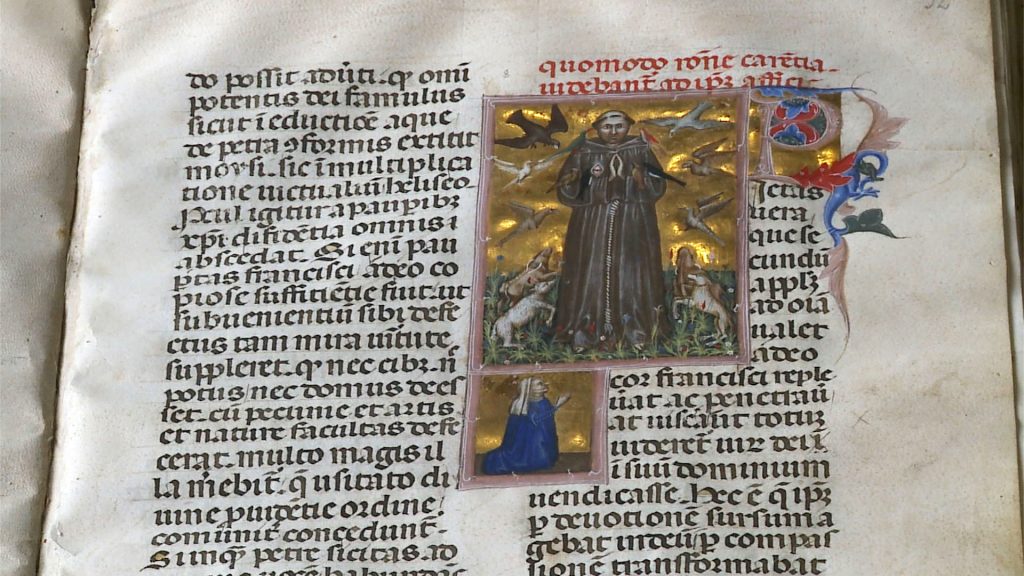 do possit advti. qꝫ omī
potentis dei famulus
sicut ī eductiōe aque
de petra ꝯformis extitit
moysi. sic ī multiplica
tione victualiū heliseo.
Procul igitur a paupibꝫ
xpi difidētia omnis
abscedat. Si enī pau
ptas francisci adeo co
piose sufficiētie fuit. ut
subuenientiū sibi defe
ctus tam mira uirtute
suppleret. qꝫ nec cibꝫ. n̄
potus. nec domus dees
set. cū pecunie et artis
et nature facultas defe
cerat. multo magis il
la mebit̄. q̄ usitato di
uine ꝓuidētie ordine
comunit̄ concedunt̄.
Si inqꝫ petre sicitas ad
quomodo rōne carētia.
uidebant̄ ad ipꝫ affici
Pietas
uera
que se
cundū
applꝫ
ad oīa
ualet
adeo
cor francisci reple
uāt ac penetrau
at uiscāt totuꝫ
uideret̄ uiꝫ dei ī
i suū dominium
uendicasse. Hec ē q̄ ipꝫ
ꝑ deuotionē sursum a
gebat in deū ꝑ compas
sionē transformabat